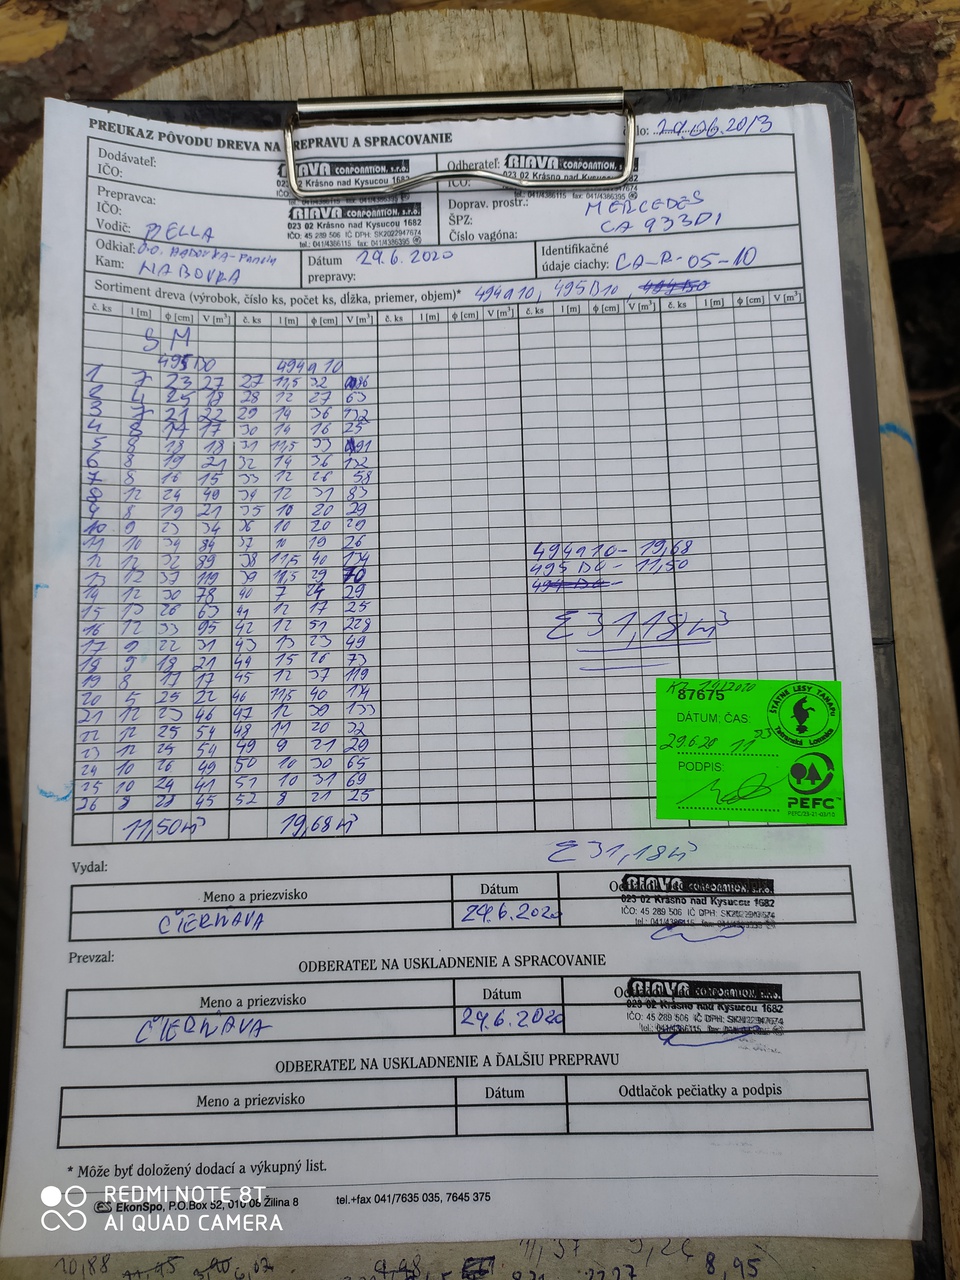 PREUKAZ PÔVODU DREVA NA PREPRAVU A SPRACOVANIE
Dodávateľ:
IČO:
RIAVA CORPORATION, s.r.o.
023 02 Krásno nad Kysucou 1682
Odberateľ:
IČO:
RIAVA CORPORATION, s.r.o.
023 02 Krásno nad Kysucou 1682
Prepravca:
IČO:
Vodič:
RIAVA CORPORATION, s.r.o.
023 02 Krásno nad Kysucou 1682
IČO: 45 289 506 IČ DPH: SK2022947674
tel.: 041/4386115
Doprav. prostr.: MERCEDES
ŠPZ: CA 933DI
Číslo vagóna:
Odkiaľ:
Kam: HABOVKA
Dátum prepravy: 29.6.2020
Identifikačné údaje ciachy: CA-R-05-10
Sortiment dreva (výrobok, číslo ks, počet ks, dĺžka, priemer, objem)* 494a10, 495D10
č. ks l [m] ϕ [cm] V [m³] č. ks l [m] ϕ [cm] V [m³] č. ks l [m] ϕ [cm] V [m³] č. ks l [m] ϕ [cm] V [m³]
SM
494a10
1 7 23 27 27 11,5 32
2 4 25 18 28 12 27 63
3 7 21 22 29 14 36 132
4 8 17 30 14 16 25
5 8 18 18 31 11,5 33
6 8 19 21 32 14 36 132
7 8 16 15 33 12 26 58
8 12 24 49 34 12 31 83
9 8 19 21 35 10 20 29
10 9 23 34 36 10 20 29
11 10 34 84 37 10 19 26
12 12 32 89 38 11,5 40 134
13 12 37 119 39 11,5 29 70
14 12 30 78 40 7 24 29
15 13 26 63 41 12 17 25
16 12 33 95 42 12 51 228
17 9 22 31 43 13 23 49
18 9 18 21 44 15 26 73
19 8 17 17 45 12 37 119
20 5 25 22 46 11,5 40 134
21 12 23 46 47 12 39 133
22 12 25 54 48 11 20 32
23 12 25 54 49 9 21 29
24 10 26 49 50 10 30 65
25 10 24 41 51 10 31 69
26 8 28 45 52 8 21 25
494a10- 19,68
495D0- 11,50
Σ 31,18 m³
11,50m³ 19,68m³
Σ 31,18m³
87675
DÁTUM; ČAS:
29.6.20 11 23
PODPIS:
ŠTÁTNE LESY TANAPU
Tatranská Lomnica
PEFC
Vydal:
Meno a priezvisko Dátum
ČIERŇAVA 29.6.2020
RIAVA CORPORATION, s.r.o.
023 02 Krásno nad Kysucou 1682
IČO: 45 289 506 IČ DPH: SK2022947674
tel.: 041/4386115
Prevzal:
ODBERATEĽ NA USKLADNENIE A SPRACOVANIE
Meno a priezvisko Dátum
ČIERŇAVA 29.6.2020
RIAVA CORPORATION, s.r.o.
023 02 Krásno nad Kysucou 1682
IČO: 45 289 506 IČ DPH: SK2022947674
tel.: 041/4386115
ODBERATEĽ NA USKLADNENIE A ĎALŠIU PREPRAVU
Meno a priezvisko Dátum Odtlačok pečiatky a podpis
* Môže byť doložený dodací a výkupný list.
EkonSpo, P.O.Box 52, 010 08 Žilina 8 tel.+fax 041/7635 035, 7645 375
REDMI NOTE 8T
AI QUAD CAMERA
10,88
8,95